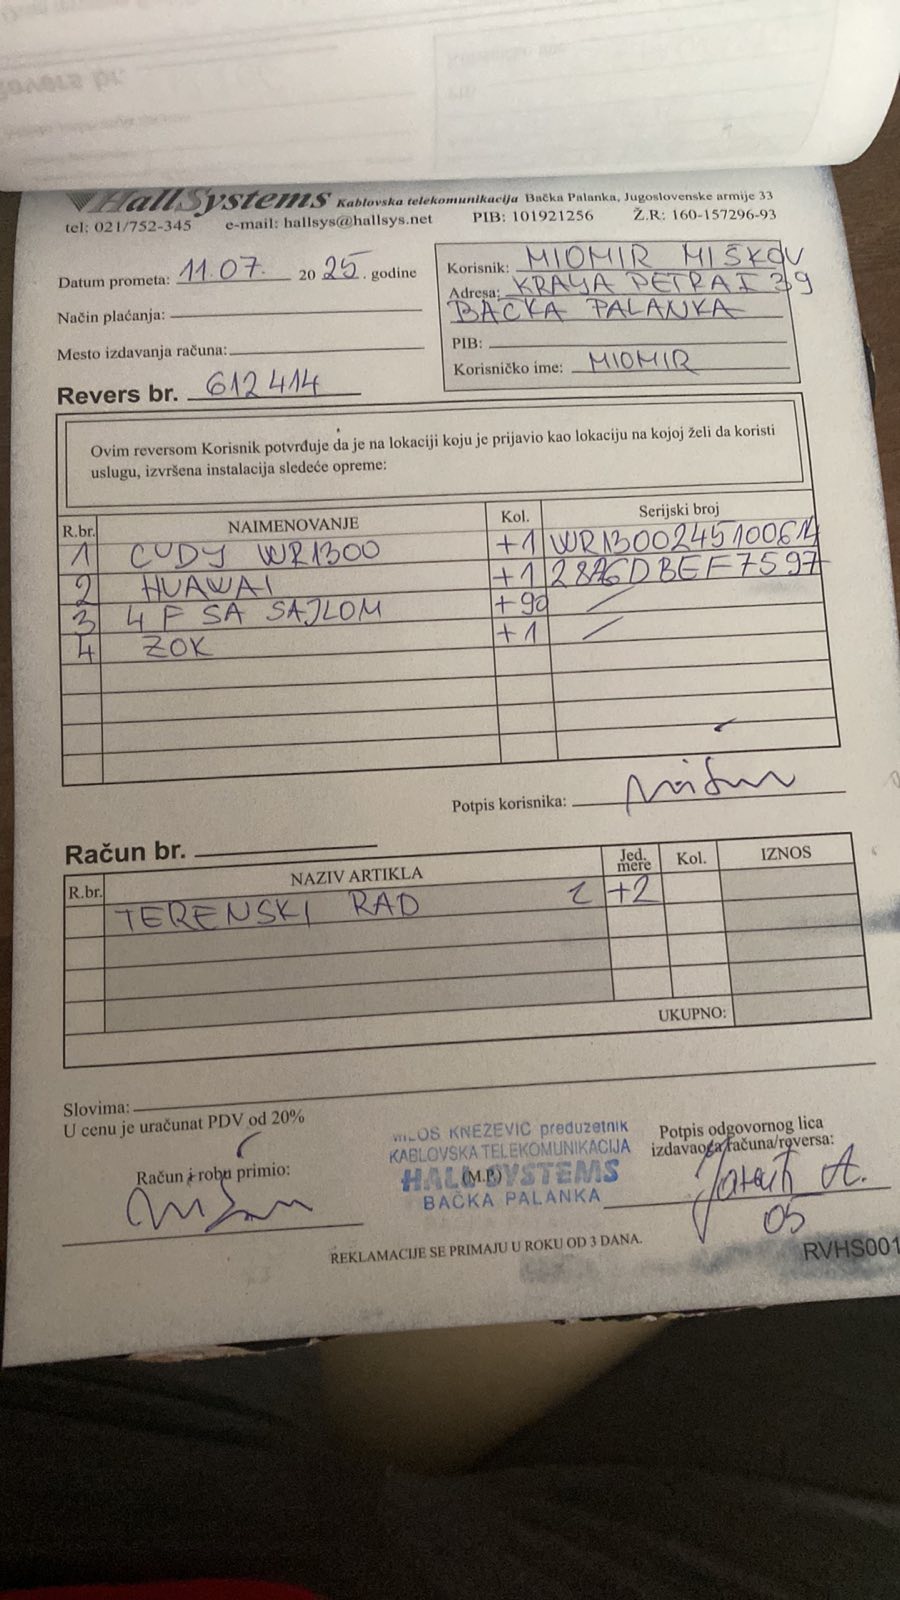 HallSystems Kablovska telekomunikacija Bačka Palanka, Jugoslovenske armije 33
tel: 021/752-345 e-mail: hallsys@hallsys.net PIB: 101921256 Ž.R: 160-157296-93
Datum prometa: 11.07. 20 25. godine
Način plaćanja:
Mesto izdavanja računa:
Revers br. 612414
Korisnik: MIOMIR MIŠKOV
Adresa: KRALJA PETRA I 39
BAČKA PALANKA
PIB:
Korisničko ime: MIOMIR
Ovim reversom Korisnik potvrđuje da je na lokaciji koju je prijavio kao lokaciju na kojoj želi da koristi
uslugu, izvršena instalacija sledeće opreme:
R.br. NAIMENOVANJE Kol. Serijski broj
1 CUDY WR1300 +1 WR1300245100614
2 HUAWAI +1
3 4 F SA SAJLOM +90 /
4 ZOK +1 /
Potpis korisnika:
Račun br.
R.br. NAZIV ARTIKLA Jed. mere Kol. IZNOS
TERENSKI RAD 2 +2
UKUPNO:
Slovima:
U cenu je uračunat PDV od 20%
Račun i robu primio:
MILOS KNEZEVIC preduzetnik
KABLOVSKA TELEKOMUNIKACIJA
HALL SYSTEMS
(M.P.)
BAČKA PALANKA
Potpis odgovornog lica
izdavaoca računa/reversa:
05
REKLAMACIJE SE PRIMAJU U ROKU OD 3 DANA.
RVHS001